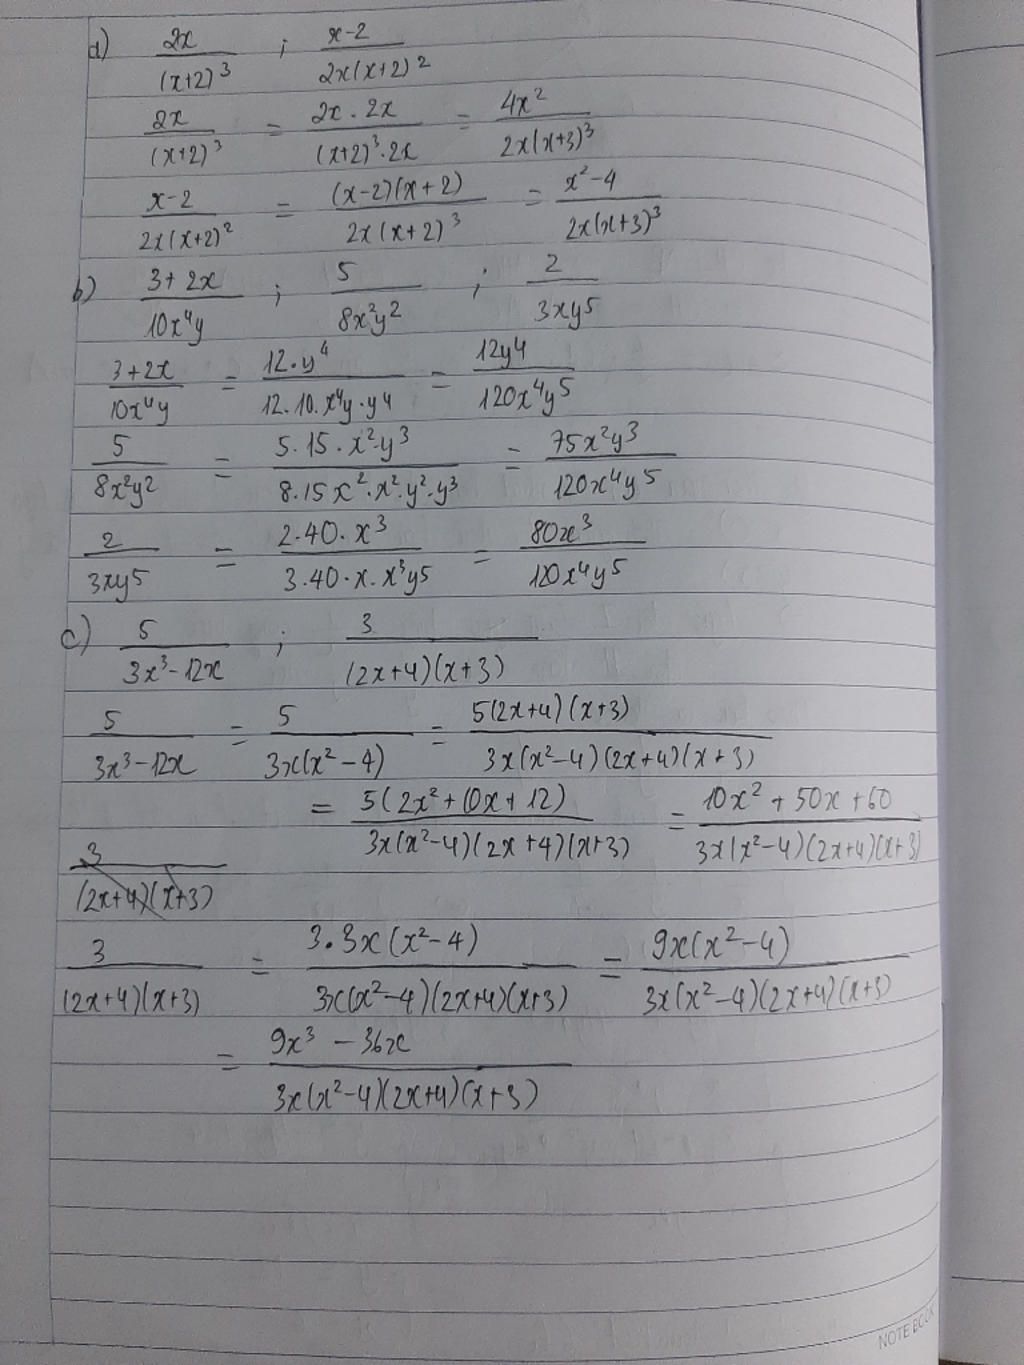 a) 2x/(x+2)³ ; x-2/2x(x+2)²
2x/(x+2)³ = 2x . 2x/(x+2)³.2x = 4x²/2x(x+3)³
x-2/2x(x+2)² = (x-2)(x+2)/2x(x+2)³ = x²-4/2x(x+3)³
b) 3+2x/10x⁴y ; 5/8x²y² ; 2/3xy⁵
3+2x/10x⁴y = 12.y⁴/12.10.x⁴y.y⁴ = 12y⁴/120x⁴y⁵
5/8x²y² = 5.15.x².y³/8.15x².x².y².y³ = 75x²y³/120x⁴y⁵
2/3xy⁵ = 2.40.x³/3.40.x.x³y⁵ = 80x³/120x⁴y⁵
c) 5/3x³-12x ; 3/(2x+4)(x+3)
5/3x³-12x = 5/3x(x²-4) = 5(2x+4)(x+3)/3x(x²-4)(2x+4)(x+3)
= 5(2x²+10x+12)/3x(x²-4)(2x+4)(x+3) = 10x²+50x+60/3x(x²-4)(2x+4)(x+3)
3/(2x+4)(x+3)
3/(2x+4)(x+3) = 3.3x(x²-4)/3x(x²-4)(2x+4)(x+3) = 9x(x²-4)/3x(x²-4)(2x+4)(x+3)
= 9x³-36x/3x(x²-4)(2x+4)(x+3)
NOTEBOOK